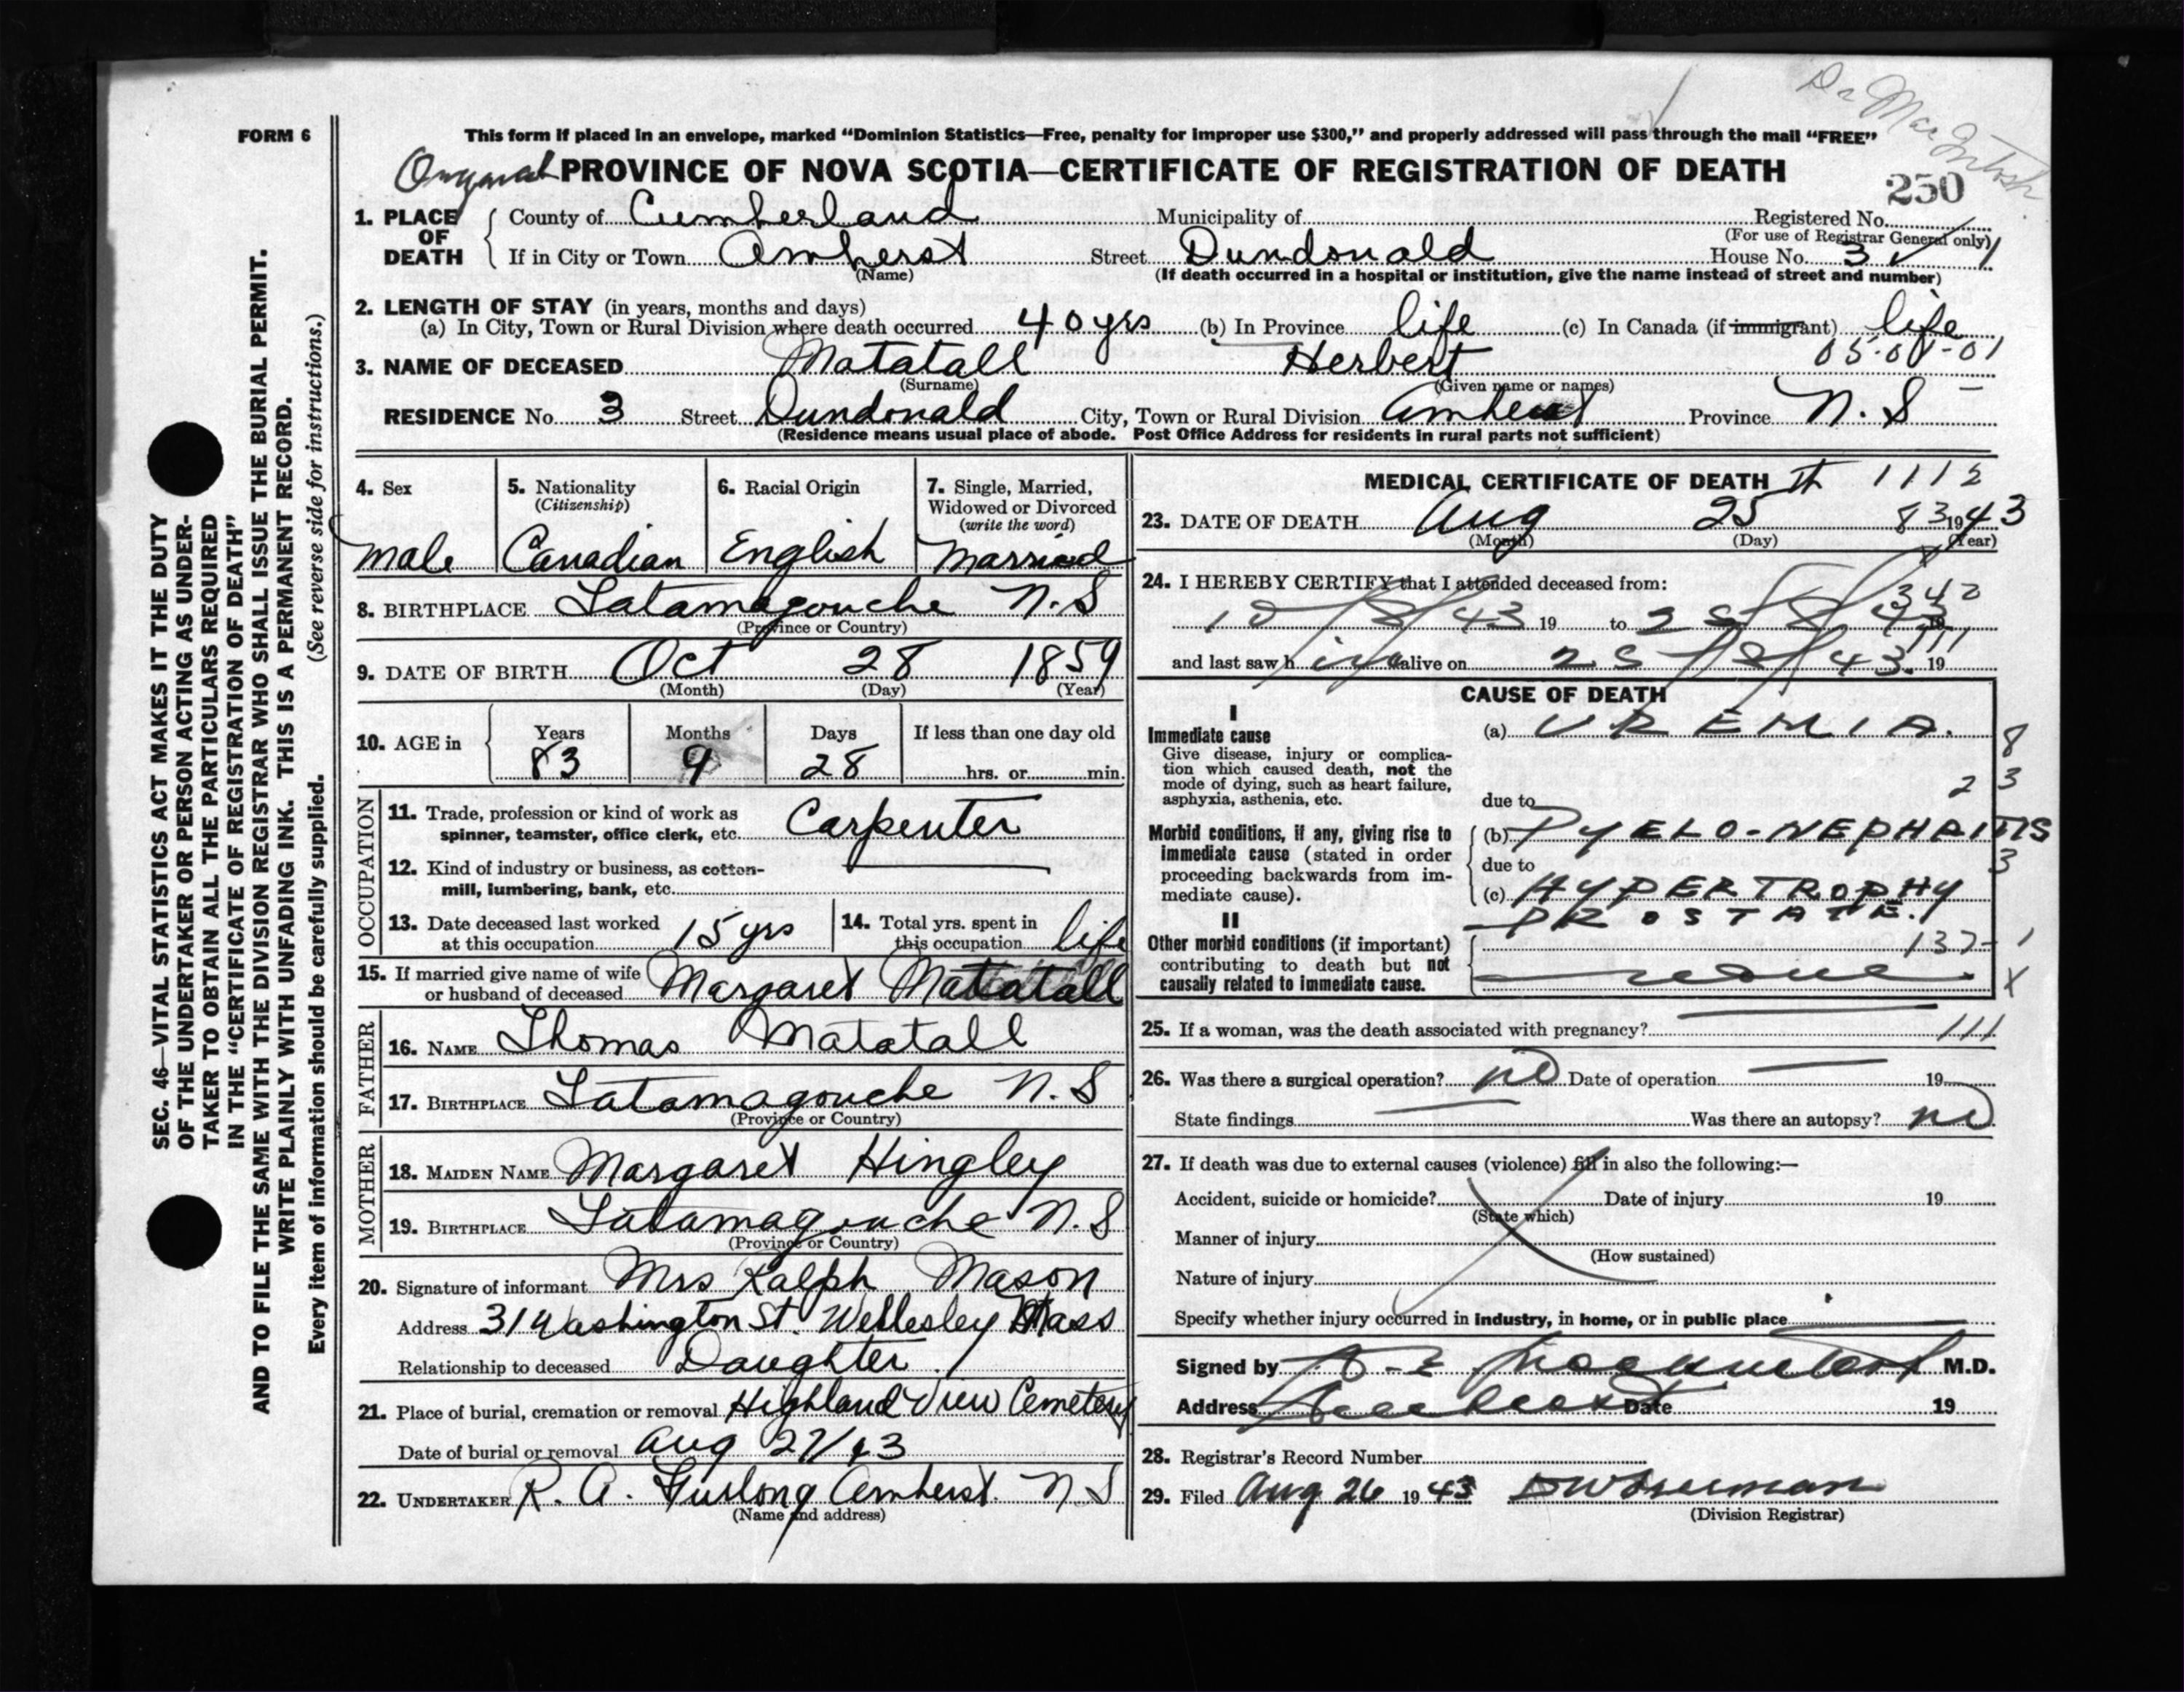 Dr MacIntosh
FORM 6
This form if placed in an envelope, marked “Dominion Statistics—Free, penalty for improper use $300,” and properly addressed will pass through the mail “FREE”
Original PROVINCE OF NOVA SCOTIA—CERTIFICATE OF REGISTRATION OF DEATH
250
1. PLACE OF DEATH County of Cumberland Municipality of Registered No.
(For use of Registrar General only)
If in City or Town Amherst Street Dundonald House No. 3
(Name) (If death occurred in a hospital or institution, give the name instead of street and number)
2. LENGTH OF STAY (in years, months and days)
(a) In City, Town or Rural Division where death occurred 40 yrs (b) In Province life (c) In Canada (if immigrant) life
05-01-01
3. NAME OF DECEASED Matatall Herbert
(Surname) (Given name or names)
RESIDENCE No. 3 Street Dundonald City, Town or Rural Division Amherst Province N. S
(Residence means usual place of abode. Post Office Address for residents in rural parts not sufficient)
4. Sex 5. Nationality 6. Racial Origin 7. Single, Married,
(Citizenship) Widowed or Divorced
(write the word)
male Canadian English Married
8. BIRTHPLACE Tatamagouche N.S
(Province or Country)
9. DATE OF BIRTH Oct 28 1859
(Month) (Day) (Year)
10. AGE in Years Months Days If less than one day old
83 9 28 hrs. or min.
OCCUPATION
11. Trade, profession or kind of work as
spinner, teamster, office clerk, etc. Carpenter
12. Kind of industry or business, as cotton-
mill, lumbering, bank, etc.
13. Date deceased last worked
at this occupation 15 yrs
14. Total yrs. spent in
this occupation life
15. If married give name of wife
or husband of deceased Margaret Matatall
FATHER
16. NAME Thomas Matatall
17. BIRTHPLACE Tatamagouche N. S
(Province or Country)
MOTHER
18. MAIDEN NAME Margaret Hingley
19. BIRTHPLACE Tatamagouche N. S
(Province or Country)
20. Signature of informant Mrs Ralph Mason
Address 31 Washington St. Wellesley Mass
Relationship to deceased Daughter
21. Place of burial, cremation or removal Highland View Cemetery
Date of burial or removal Aug 27/43
22. UNDERTAKER R. A. Furlong Amherst. N S
(Name and address)
MEDICAL CERTIFICATE OF DEATH 1112
23. DATE OF DEATH Aug 25th 83 1943
(Month) (Day) (Year)
24. I HEREBY CERTIFY that I attended deceased from:
342
10/8/43 19 to 25/8/43 19
111
and last saw him alive on 25/8/43. 19
CAUSE OF DEATH
I
Immediate cause
Give disease, injury or complica-
tion which caused death, not the
mode of dying, such as heart failure,
asphyxia, asthenia, etc.
(a) UREMIA. 8
due to 2 3
Morbid conditions, if any, giving rise to
immediate cause (stated in order
proceeding backwards from im-
mediate cause).
(b) PYELO-NEPHRITIS
due to 3
(c) HYPERTROPHY
PROSTATE.
II
Other morbid conditions (if important)
contributing to death but not
causally related to immediate cause.
137- 1
none X
25. If a woman, was the death associated with pregnancy? 111
26. Was there a surgical operation? no Date of operation 19
State findings Was there an autopsy? no
27. If death was due to external causes (violence) fill in also the following:—
Accident, suicide or homicide? Date of injury 19
(State which)
Manner of injury
(How sustained)
Nature of injury
Specify whether injury occurred in industry, in home, or in public place
Signed by M.D.
Address Amherst Date 19
28. Registrar's Record Number
29. Filed Aug 26 1943
(Division Registrar)
SEC. 46—VITAL STATISTICS ACT MAKES IT THE DUTY
OF THE UNDERTAKER OR PERSON ACTING AS UNDER-
TAKER TO OBTAIN ALL THE PARTICULARS REQUIRED
IN THE “CERTIFICATE OF REGISTRATION OF DEATH”
AND TO FILE THE SAME WITH THE DIVISION REGISTRAR WHO SHALL ISSUE THE BURIAL PERMIT.
WRITE PLAINLY WITH UNFADING INK. THIS IS A PERMANENT RECORD.
Every item of information should be carefully supplied. (See reverse side for instructions.)